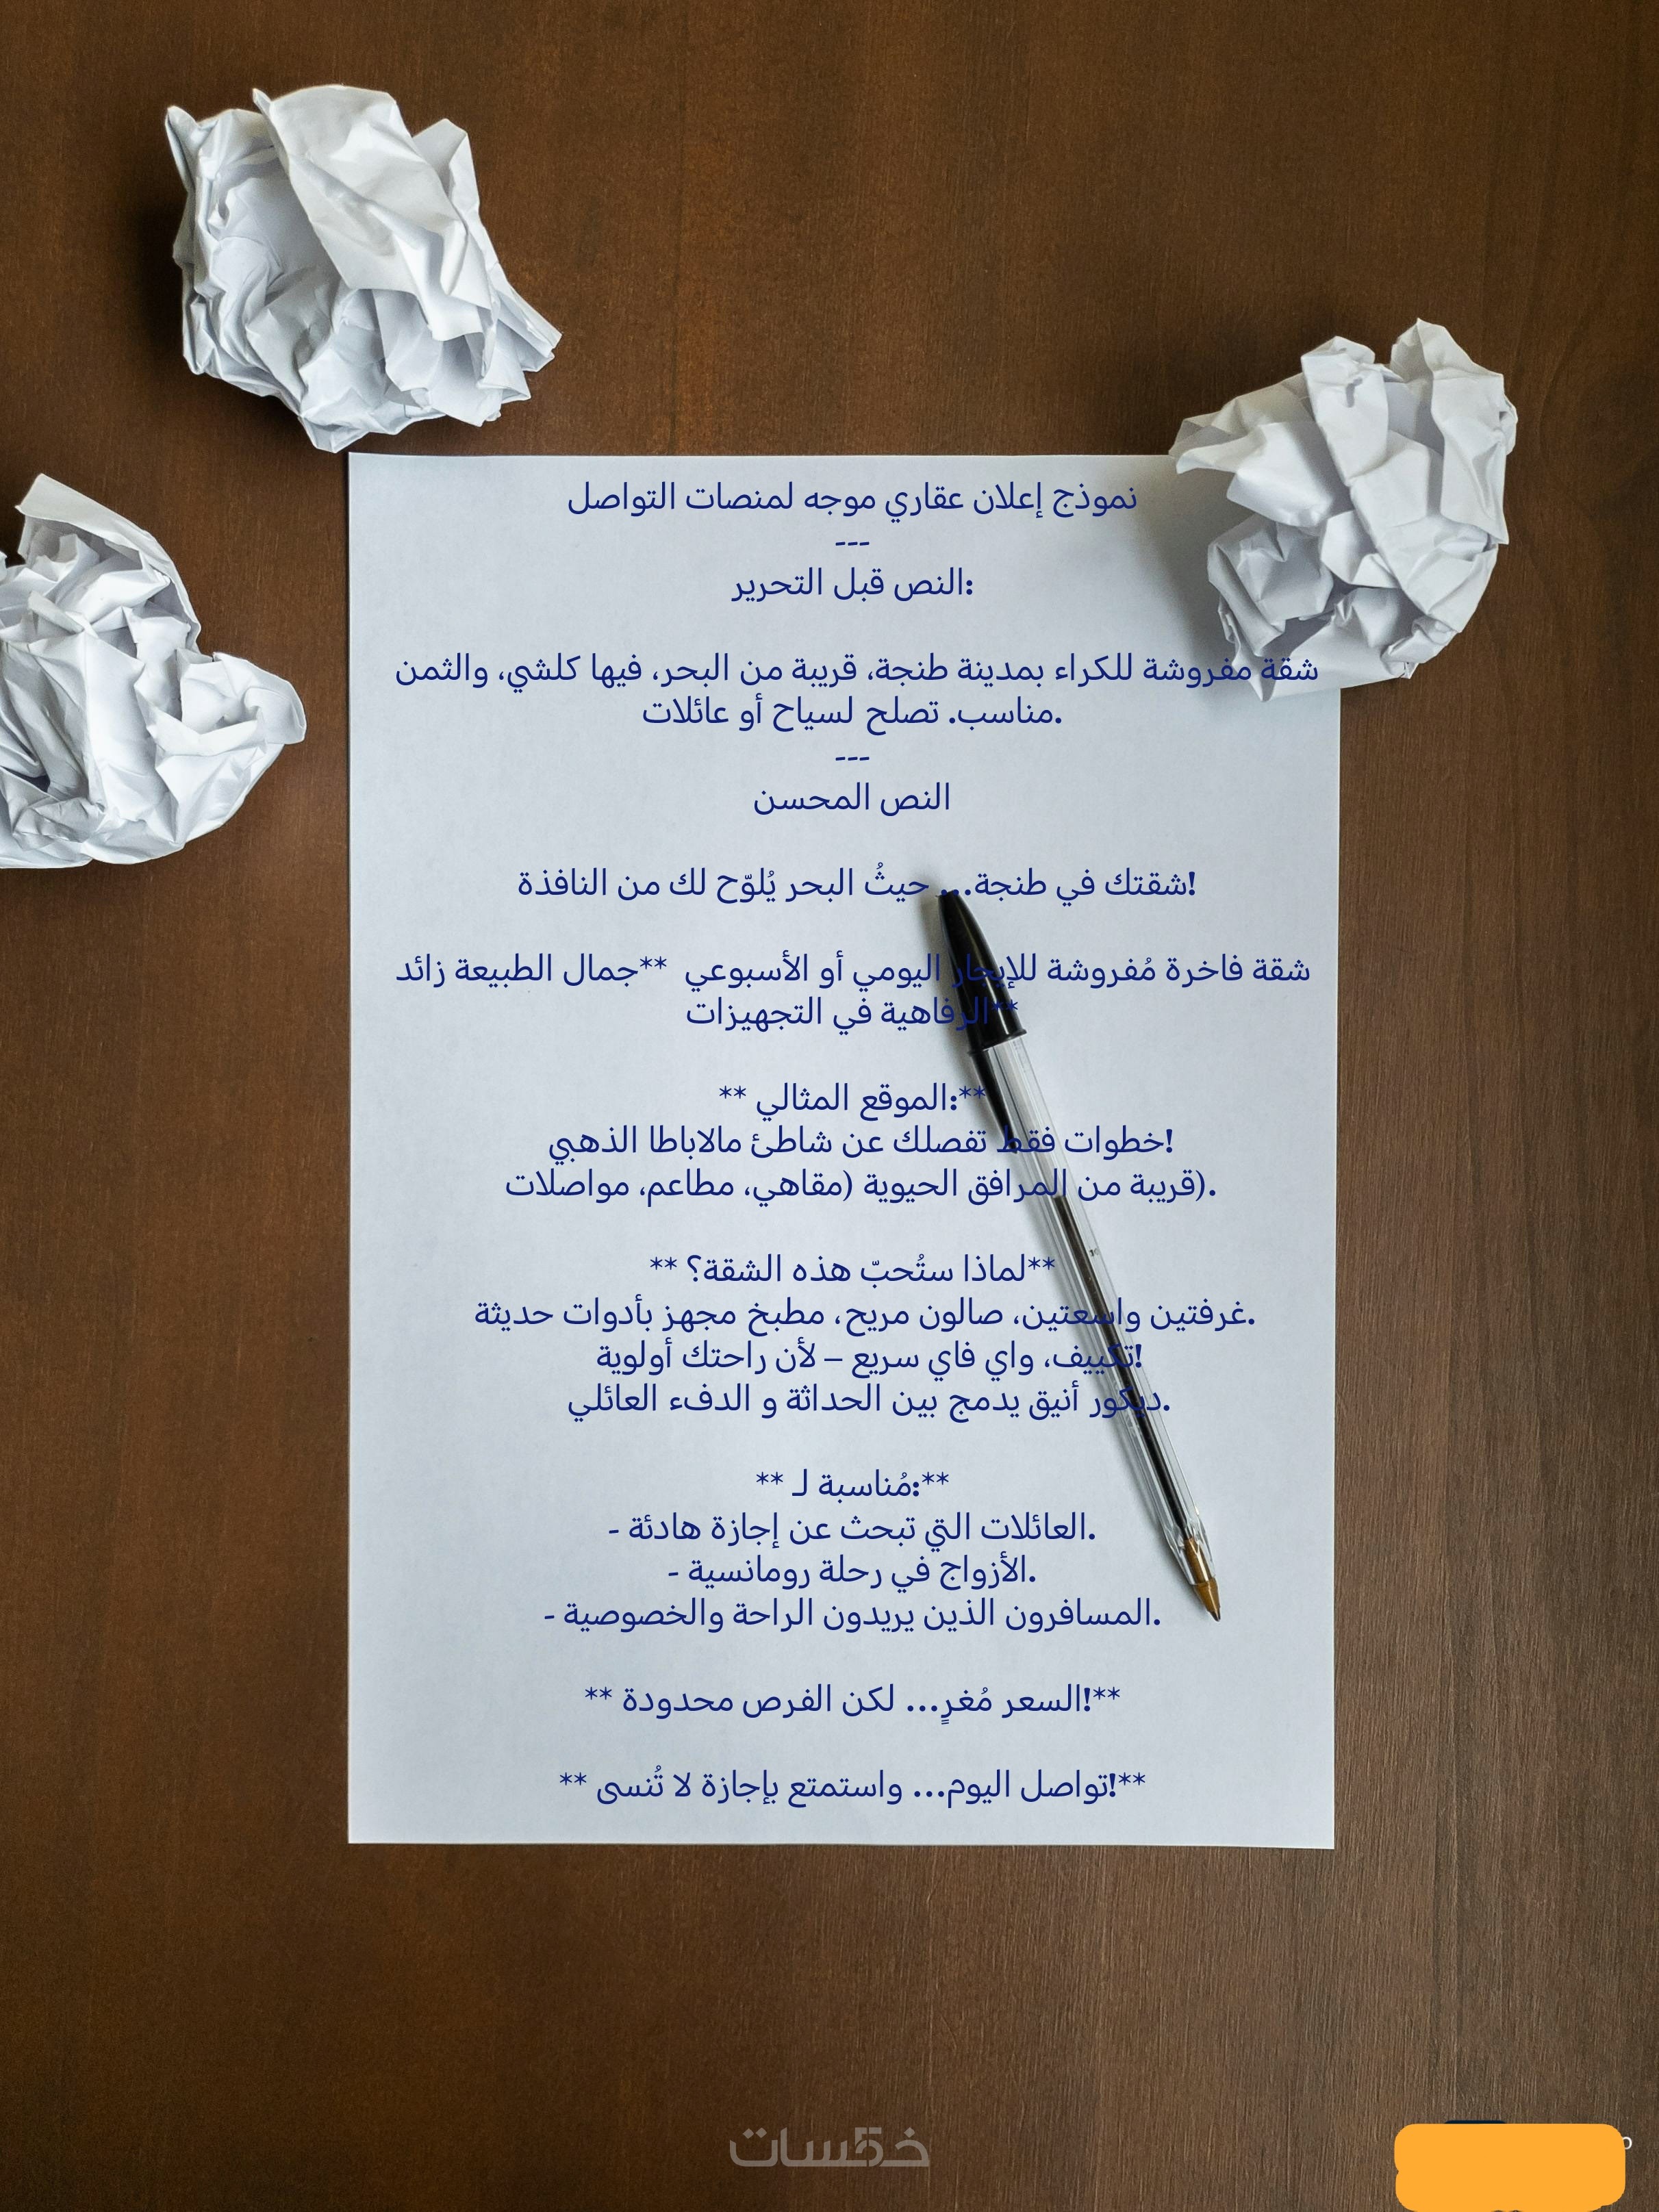 نموذج إعلان عقاري موجه لمنصات التواصل
---
النص قبل التحرير:
شقة مفروشة للكراء بمدينة طنجة، قريبة من البحر، فيها كلشي، والثمن
مناسب. تصلح لسياح أو عائلات.
---
النص المحسن
شقتك في طنجة... حيثُ البحر يُلوّح لك من النافذة!
شقة فاخرة مُفروشة للإيجار اليومي أو الأسبوعي **جمال الطبيعة زائد
الرفاهية في التجهيزات**
** الموقع المثالي:**
خطوات فقط تفصلك عن شاطئ مالاباطا الذهبي!
قريبة من المرافق الحيوية (مقاهي، مطاعم، مواصلات).
**لماذا ستُحبّ هذه الشقة؟ **
غرفتين واسعتين، صالون مريح، مطبخ مجهز بأدوات حديثة.
تكييف، واي فاي سريع – لأن راحتك أولوية!
ديكور أنيق يدمج بين الحداثة و الدفء العائلي.
** مُناسبة لـ:**
- العائلات التي تبحث عن إجازة هادئة.
- الأزواج في رحلة رومانسية.
- المسافرون الذين يريدون الراحة والخصوصية.
** السعر مُغرٍ... لكن الفرص محدودة!**
** تواصل اليوم... واستمتع بإجازة لا تُنسى!**
خمسات